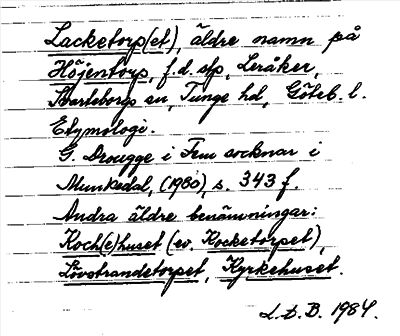 Lacketorp(et), äldre namn på
Höjentorp, f.d. stp, Leråker,
Svarteborgs sn, Tunge hd, Göteb. l.
Etymologi.
G. Drougge i Fem socknar i
Munkedal, (1980), s. 343 f.
Andra äldre benämningar:
Koch(e)huset (ev. Kocketorpet),
Lövstrandetorpet, Kyrkehuset.
L.D.B. 1984.